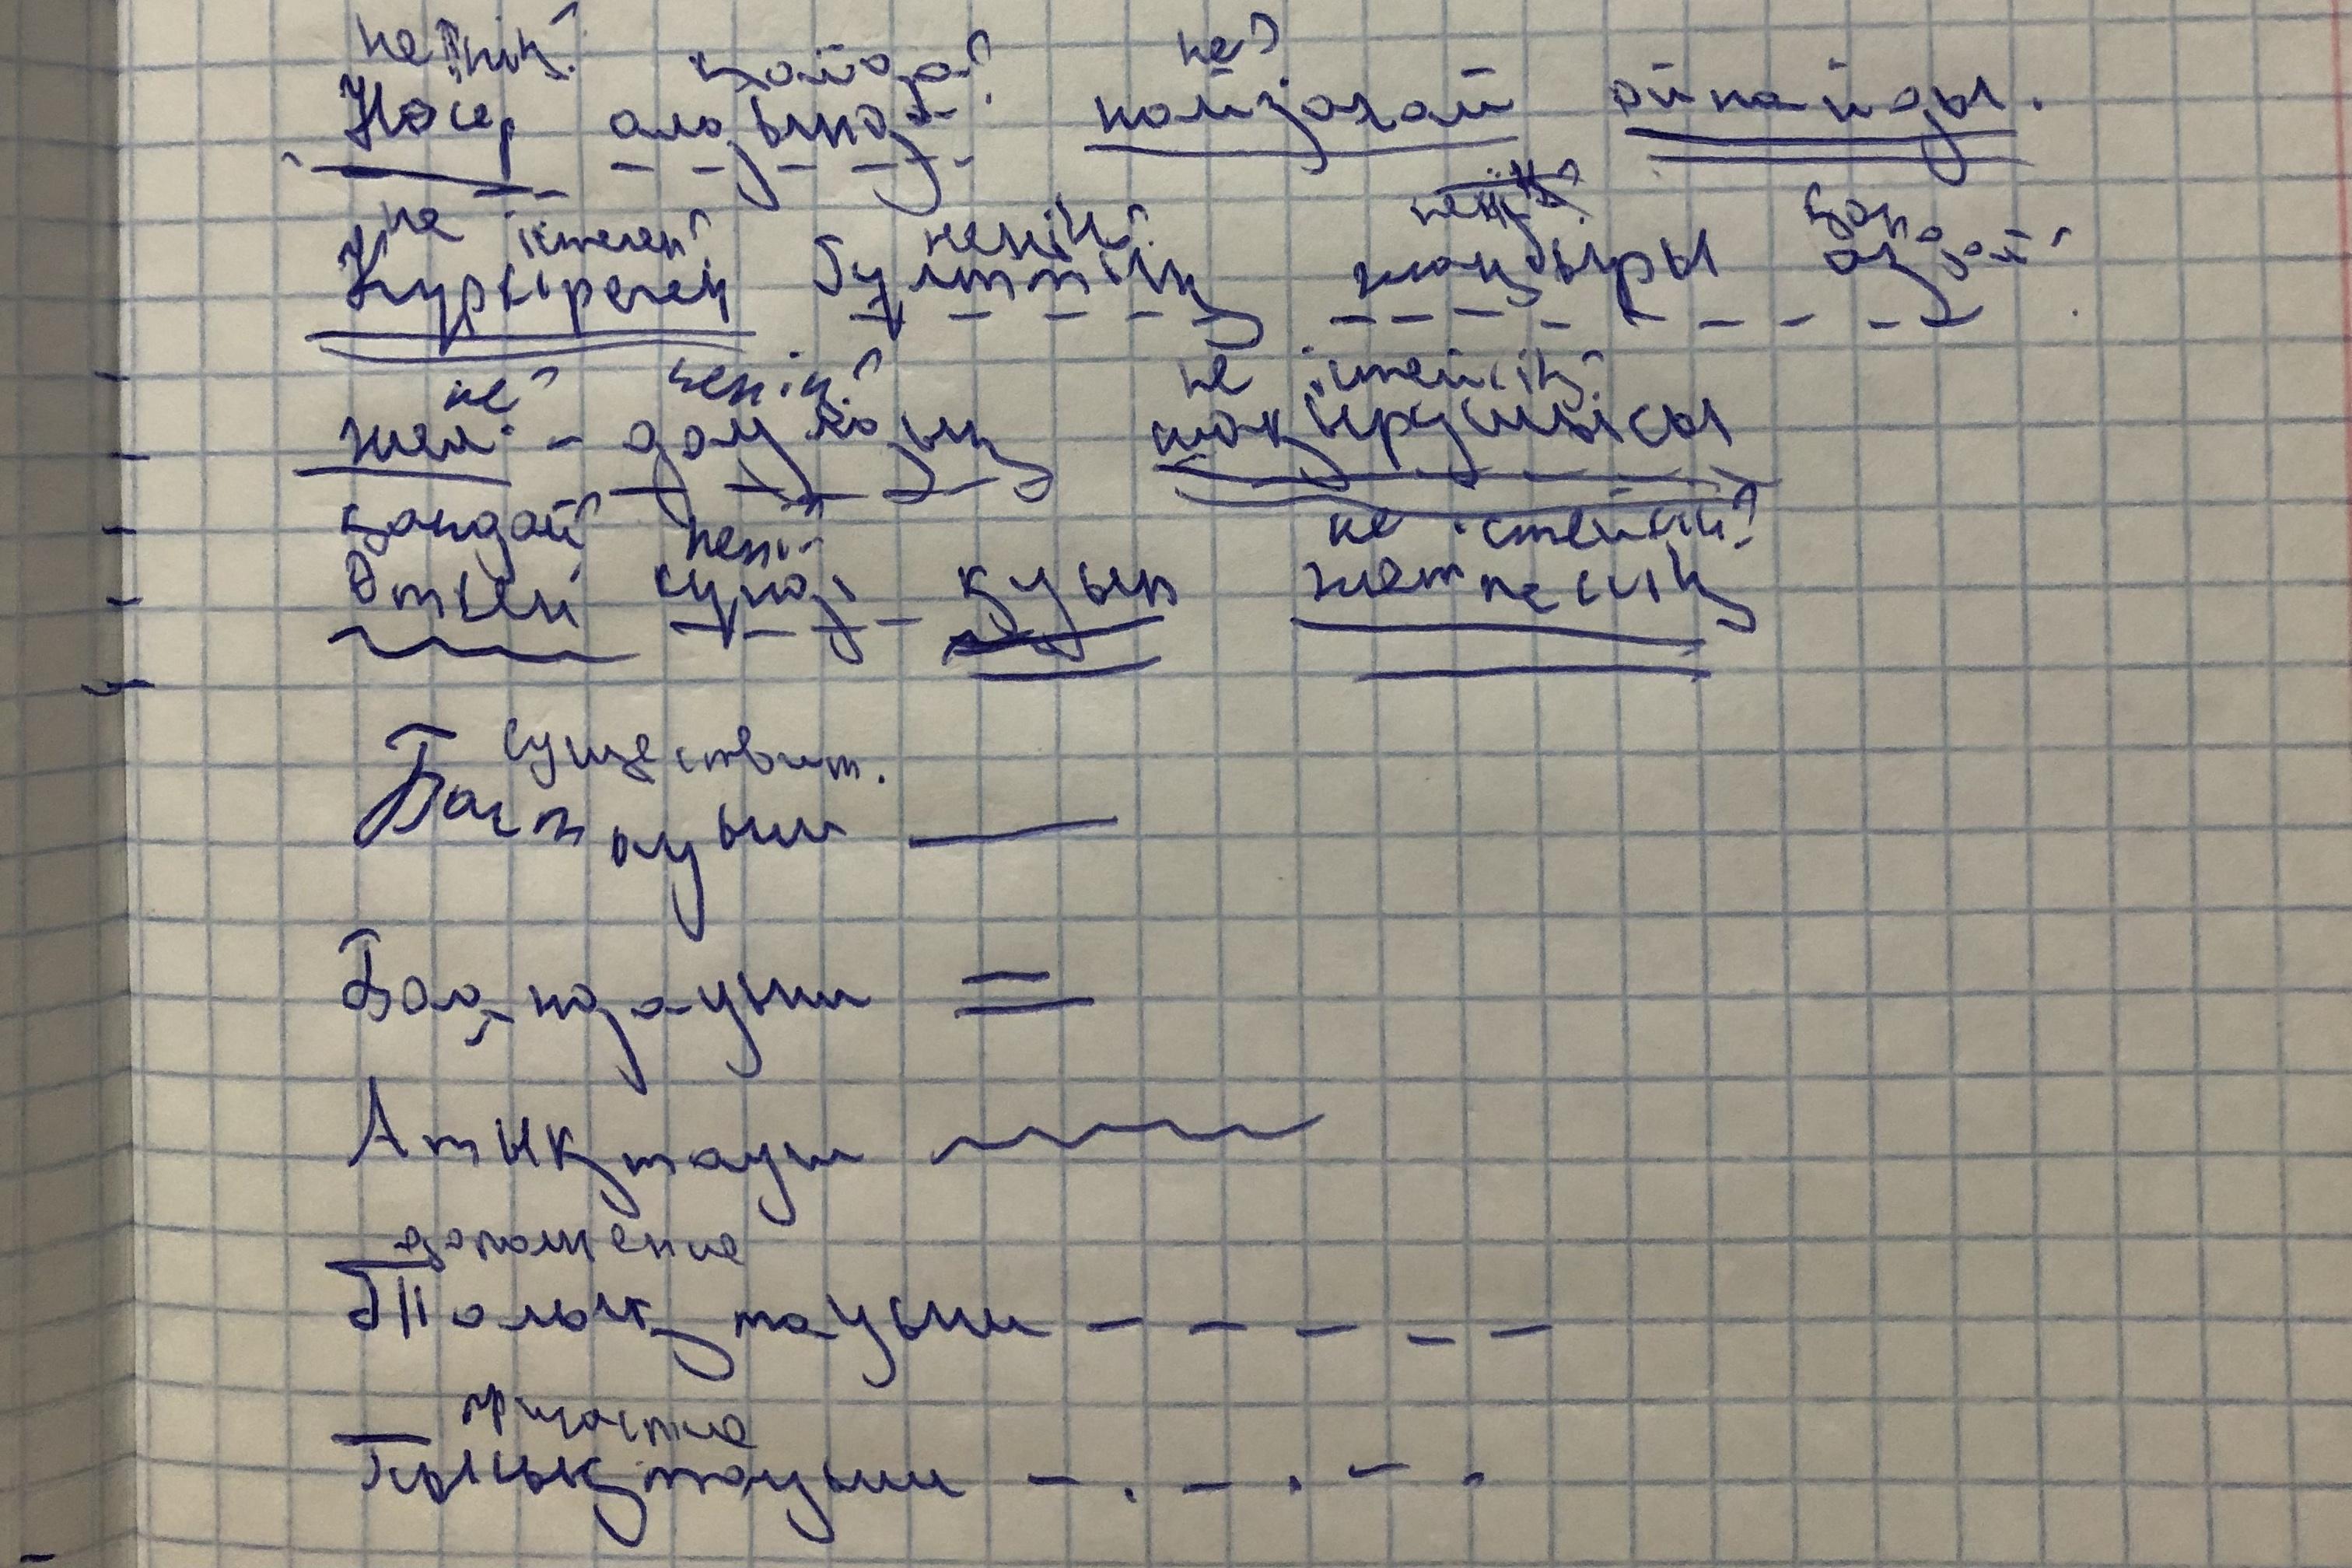 ненің? қайда? не?
Нөсер алдында найзағай ойнайды.
не істеген? ненің? қандай?
Күркіреген бұлттың жаңбыры аз
не? ненің? не істейсің?
жел - дауылдың шақырушысы
қандай? нені? не істейсің?
Өткен күнді қуып жетпессің
существит.
Бастауыш
Баяндауыш
Анықтауш
дополнение
Толықтауыш
причастие
Пысықтауыш